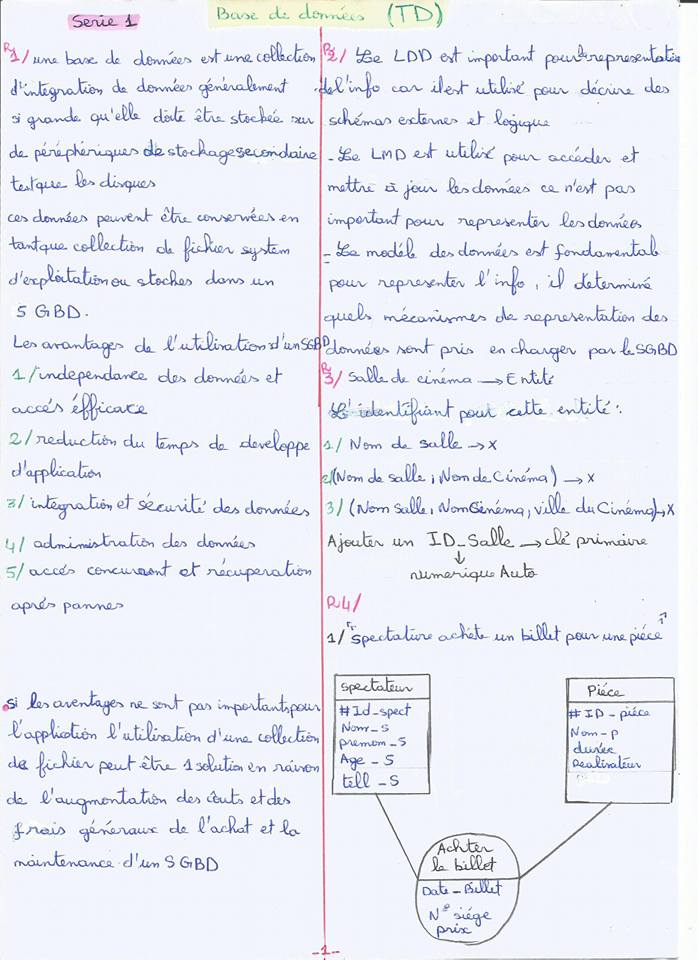 Serie 1
Base de données (TD)
R1/ une base de données est une collection
d'integration de données généralement
si grande qu'elle doite être stockée sur
de péréphériques de stockage secondaire
test que les disques
ces données peuvent être conservées en
tantque collection de fichier system
d'exploitation ou stoches dans un
SGBD.
Les avantages de l'utilisation d'un SGBD
1/ independance des données et
accés éfficace
2/ reduction du temps de developpe
d'application
3/ integration et sécurité des données
4/ administration des données
5/ accés concurant et récuperation
aprés pannes
si les aventages ne sont pas importants pour
l'application l'utilisation d'une collection
de fichier peut être 1 solution en raison
de l'augmentation des coûts et des
frais généraux de l'achat et la
maintenance d'un SGBD
R2/ Le LDD est important pour la representation
de l'info car il est utilisé pour décrire des
schémas externes et logique
- Le LMD est utilisé pour accéder et
mettre à jour les données ce n'est pas
important pour representer les données
- Le modéle des données est fondamental
pour representer l'info, il determiné
quels mécanismes de representation des
données sont pris en charger par le SGBD
R3/ Salle de cinéma → Entité
L'identifiant pour cette entité :
1/ Nom de salle → x
2/ (Nom de salle, Nom de Cinéma) → x
3/ (Nom salle, Nom Cinéma, ville du Cinéma) → x
Ajouter un ID_Salle → clé primaire
↓
numerique Auto
R4/
1/ "Spectature achéte un billet pour une piéce"
Spectateur
# Id_spect
Nom_s
prenom_s
Age_s
tell_s
Piéce
# ID_piéce
Nom_p
durée
Realisateur
Achter
le billet
Date_Billet
N° siége
prix
-1-